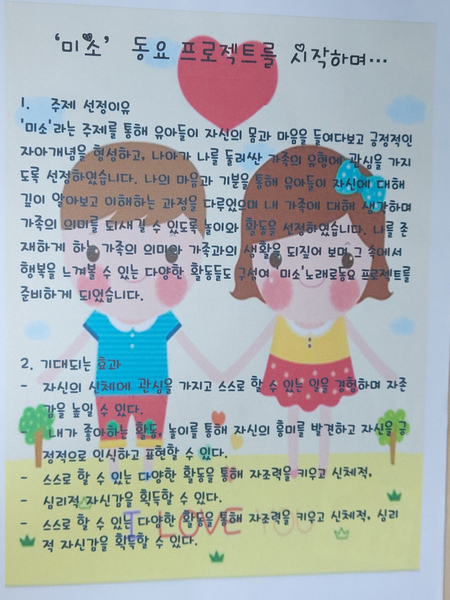 '미소' 동요 프로젝트를 시작하며...
1. 주제 선정이유
'미소'라는 주제를 통해 유아들이 자신의 몸과 마음을 들여다보고 긍정적인
자아개념을 형성하고, 나아가 나를 둘러싼 가족의 유형에 관심을 가지
도록 선정하였습니다. 나의 마음과 기분을 통해 유아들이 자신에 대해
깊이 알아보고 이해하는 과정을 다루었으며 내 가족에 대해 생각하며
가족의 의미를 되새길 수 있도록 놀이와 활동을 선정하였습니다. 나를 존
재하게 하는 가족의 의미와 가족과의 생활을 되짚어 보며 그 속에서
행복을 느껴볼 수 있는 다양한 활동들도 구성여 미소'노래로동요 프로젝트를
준비하게 되었습니다.
2. 기대되는 효과
- 자신의 신체에 관심을 가지고 스스로 할 수 있는 일을 경험하며 자존
감을 높일 수 있다.
- 내가 좋아하는 활동, 놀이를 통해 자신의 흥미를 발견하고 자신을 긍
정적으로 인식하고 표현할 수 있다.
- 스스로 할 수 있는 다양한 활동을 통해 자조력을 키우고 신체적,
- 심리적 자신감을 획득할 수 있다.
- 스스로 할 수 있는 다양한 활동을 통해 자조력을 키우고 신체적, 심리
적 자신감을 획득할 수 있다.
I LOVE YOU